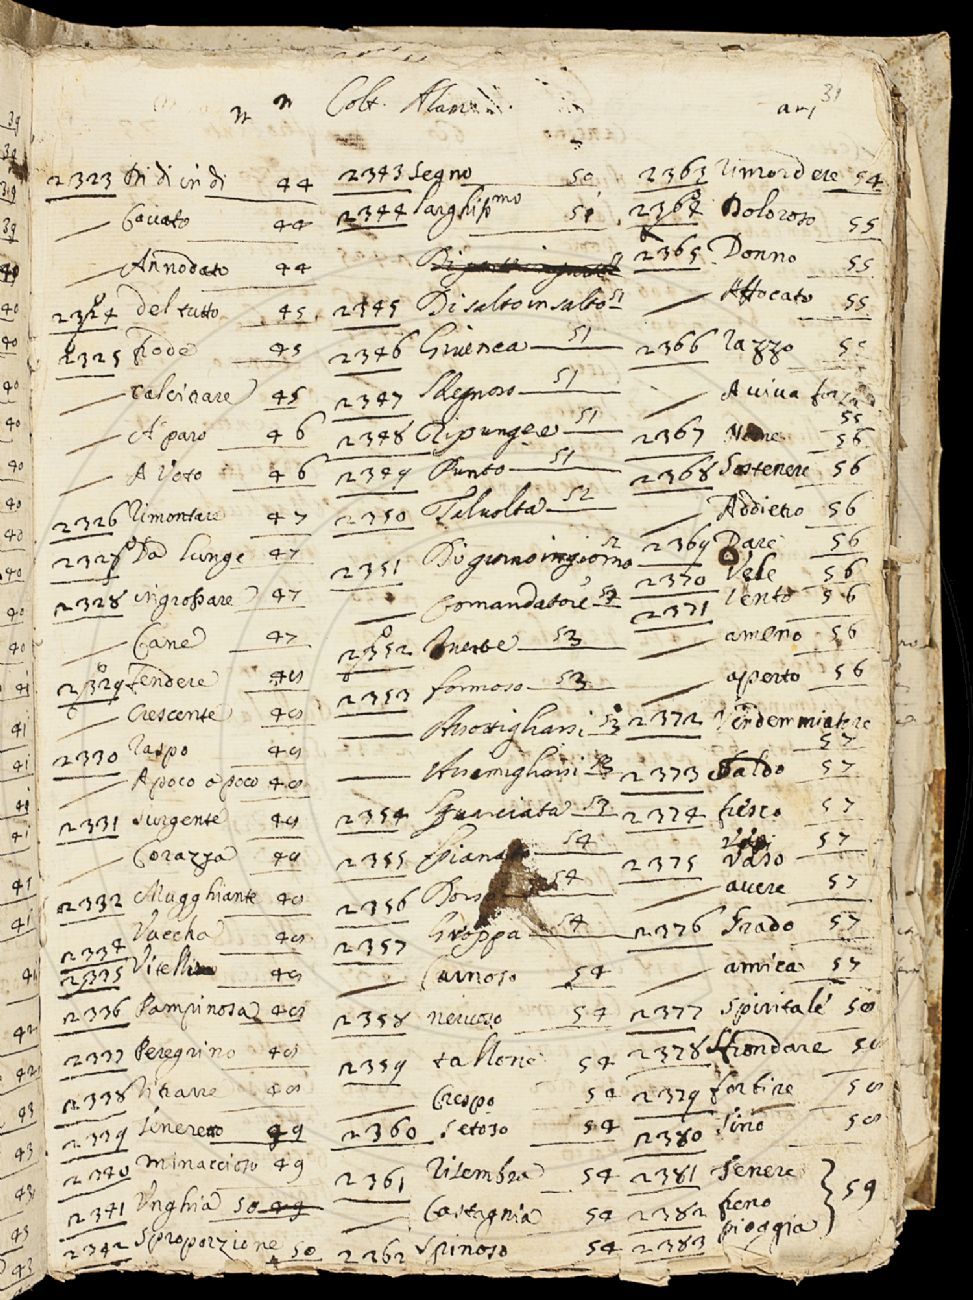 Colt. Alam.
31
2323 Di dì in dì 44
— Cavato 44
— Annodato 44
2324 del tutto 45
2325 frode 45
— calcinare 45
— A paro 46
— A voto 46
2326 rimontare 47
2327 Da lunge 47
2328 ingrossare 47
— Cane 47
2329 fendere 48
— Crescente 48
2330 raspo 48
— A poco a poco 48
2331 surgente 48
— Corazza 48
2332 Mugghiante 48
2334 Vaccha 48
2335 Vitello 48
2336 Pampinosa 48
2337 Peregrino 48
2338 Ritrarre 48
2339 Tenereto 49
2340 minaccioso 49
2341 Unghia 50 49
2342 sproporzione 50
2343 segno 50
2344 larghissmo 51
2345 Di salto in salto 51
2346 Giuenca 51
2347 Regnoso 51
2348 Ripungere 51
2349 Punto 51
2350 Talvolta 52
2351 Di giorno in giorno 52
— Comandatore
2352 Inerbe 53
2353 formoso 53
— Assottigliarsi 53
— Assomigliarsi 53
2354 Squarciata 53
2355 54
2356 54
2357 Groppa 54
— Carnoso 54
2358 neruoso 54
2359 tallone 54
— Crespo 54
2360 Setoso 54
2361 Risembra 54
— Castagnia 54
2362 Spinoso 54
2363 rimordere 54
2364 Doloroso 55
2365 Donno 55
— Affocato 55
2366 razzo 55
— A viva forza 55
2367 Nome 56
2368 Sostenere 56
— Addietro 56
2369 Dare 56
2370 Vele 56
2371 Vento 56
— ameno 56
— aperto 56
2372 Vendemmiatore 57
2373 saldo 57
2374 fresco 57
57
2375 Vaso
— auere 57
2376 Grado 57
— amica 57
2377 Spiritale 58
2378 sfrondare 58
2379 fortire 58
2380 sino 58
2381 Tenere
2382 freno } 59
2383 pioggia